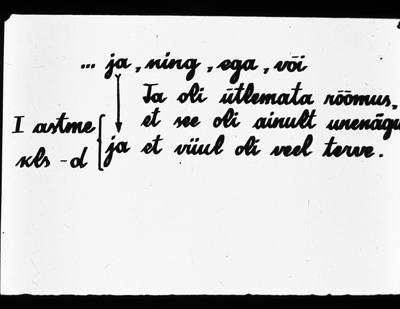 ... ja, ning, ega, või
Ta oli ütlemata rõõmus,
I astme et see oli ainult unenägu
kls -d ja et viiul oli veel terve.